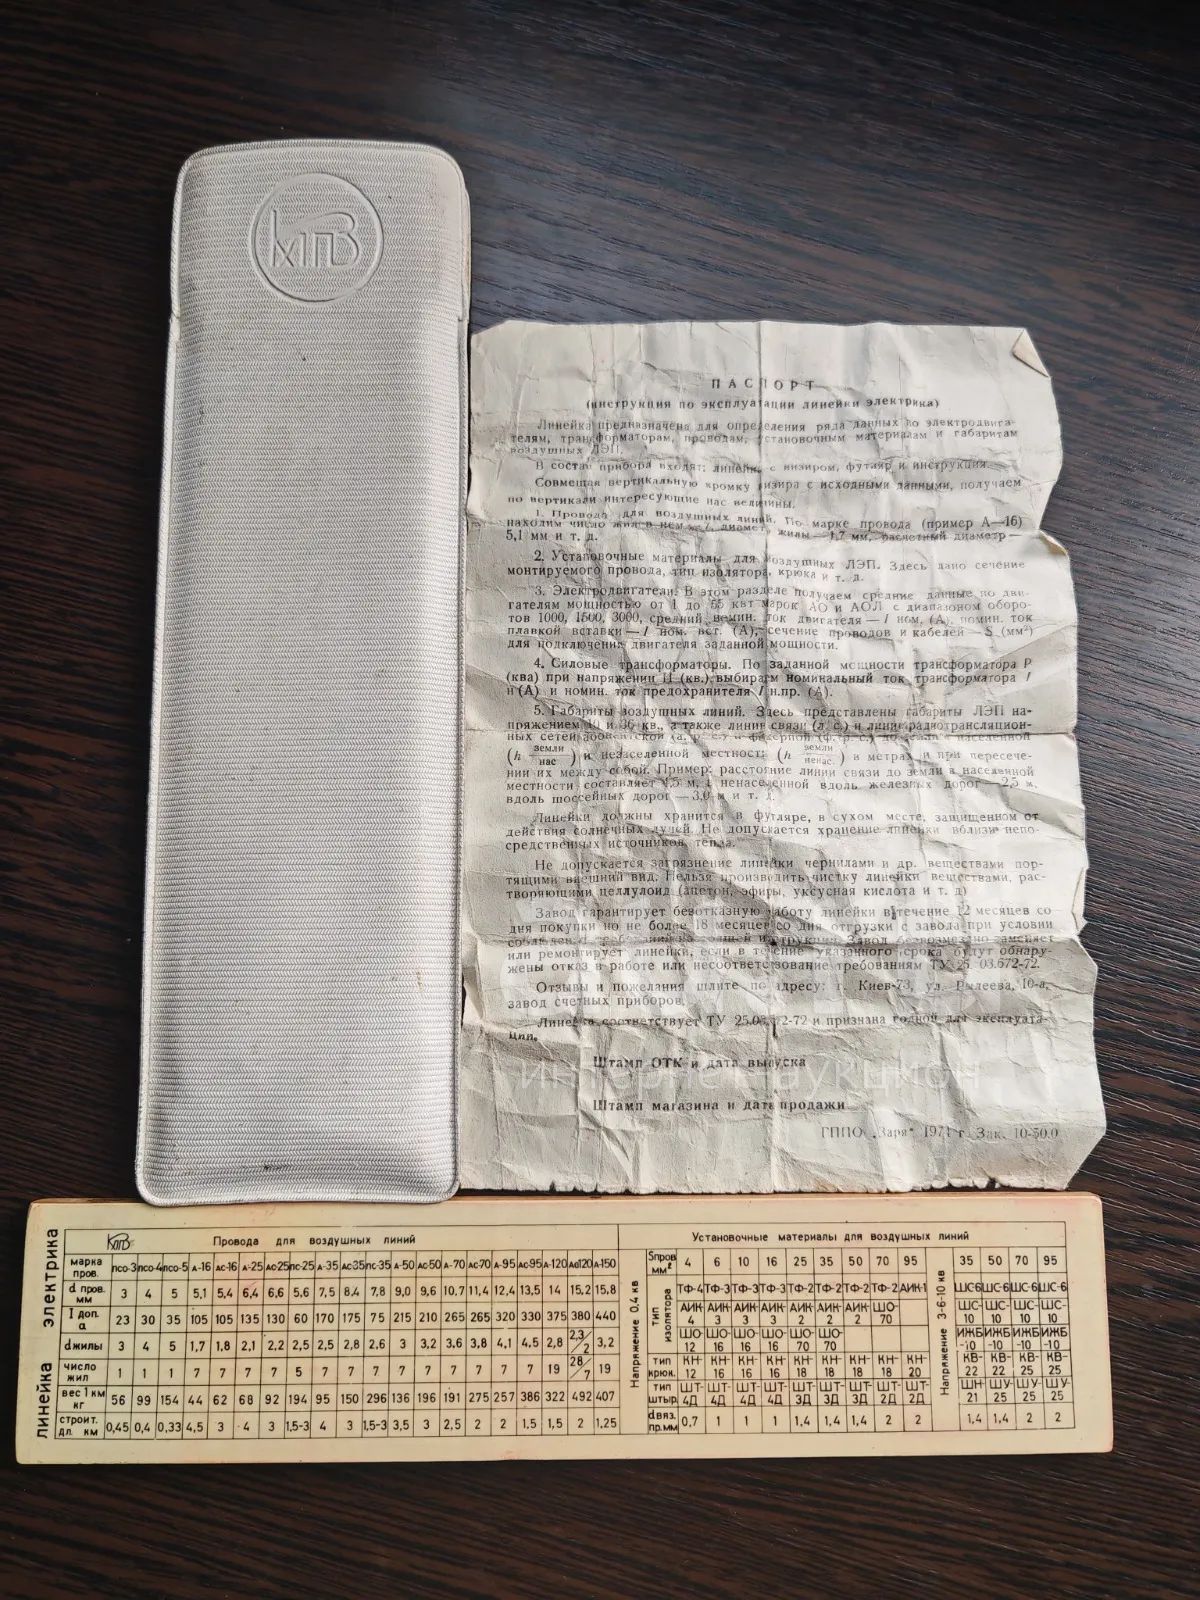 КПВ
ПАСПОРТ
(инструкция по эксплуатации линейки электрика)
Линейка предназначена для определения ряда данных по электродвига-
телям, трансформаторам, проводам, установочным материалам и габаритам
воздушных ЛЭП.
В состав прибора входят: линейка с визиром, футляр и инструкция.
Совмещая вертикальную кромку визира с исходными данными, получаем
по вертикали интересующие нас величины.
1. Провода для воздушных линий. По марке провода (пример А—16)
находим число жил в нем диамет. жилы —1,7 мм, расчетный диаметр—
5,1 мм и т. д.
2. Установочные материалы для воздушных ЛЭП. Здесь дано сечение
монтируемого провода, тип изолятора, крюка и т. д.
3. Электродвигатели. В этом разделе получаем средние данные по дви-
гателям мощностью от 1 до 55 квт марок АО и АОЛ с диапазоном оборо-
тов 1000, 1500, 3000, средний номин. ток двигателя—I ном. (А). номин. ток
плавкой вставки—I ном. вст. (А), сечение проводов и кабелей—S (мм²)
для подключения двигателя заданной мощности.
4. Силовые трансформаторы. По заданной мощности трансформатора Р
(ква) при напряжении Н (кв.) выбираем номинальный ток трансформатора I
н(А) и номин. ток предохранителя I н.пр. (А).
5. Габариты воздушных линий. Здесь представлены габариты ЛЭП на-
пряжением и 36 кв., а также линии связи (л. с.) и линии радиотрансляцион-
ных сетей абонентской и фидерной до земли в населенной
(h земли нас) и незаселенной местности (h земли ненас.) в метрах и при пересече-
нии их между собой. Пример: расстояние линии связи до земли в населенной
местности составляет 4,5 м, в ненаселенной вдоль железных дорог—2,5 м,
вдоль шоссейных дорог—3,0 м и т. д.
Линейки должны хранится в футляре, в сухом месте, защищенном от
действия солнечных лучей. Не допускается хранение линейки вблизи непо-
средственных источников тепла.
Не допускается загрязнение линейки чернилами и др. веществами пор-
тящими внешний вид. Нельзя производить чистку линейки веществами, рас-
творяющими целлулоид (ацетон, эфиры, уксусная кислота и т. д)
Завод гарантирует безотказную работу линейки в течение 12 месяцев со
дня покупки но не более 18 месяцев со дня отгрузки с завода при условии
соблюдения требований настоящей инструкции. Завод безвозмездно заменяет
или ремонтирует линейки, если в течение указанного срока будут обнару-
жены отказ в работе или несоответствование требованиям ТУ 25. 03.672-72.
Отзывы и пожелания шлите по адресу: г. Киев-73, ул. Рылеева, 10-а,
завод счетных приборов.
Линейка соответствует ТУ 25.03 2-72 и признана годной для эксплуата-
ции.
интернет аукцион
Штамп ОТК и дата выпуска
Штамп магазина и дата продажи
ГППО „Заря" 1971 г. Зак. 10-50.0
линейка электрика
КПВ Провода для воздушных линий
марка пров. ПСО-3 ПСО-4 ПСО-5 А-16 АС-16 А-25 АС-25 ПС-25 А-35 АС-35 ПС-35 А-50 АС-50 А-70 АС-70 А-95 АС-95 А-120 АС120 А-150
d пров. мм 3 4 5 5,1 5,4 6,4 6,6 5,6 7,5 8,4 7,8 9,0 9,6 10,7 11,4 12,4 13,5 14 15,2 15,8
I доп. а 23 30 35 105 105 135 130 60 170 175 75 215 210 265 265 320 330 375 380 440
d жилы 3 4 5 1,7 1,8 2,1 2,2 2,5 2,5 2,8 2,6 3 3,2 3,6 3,8 4,1 4,5 2,8 2,3/2 3,2
число жил 1 1 1 7 7 7 7 5 7 7 7 7 7 7 7 7 7 19 28/7 19
вес 1 км кг 56 99 154 44 62 68 92 194 95 150 296 136 196 191 275 257 386 322 492 407
строит. дл. км 0,45 0,4 0,33 4,5 3 4 3 1,5-3 4 3 1,5-3 3,5 3 2,5 2 2 1,5 1,5 2 1,25
Установочные материалы для воздушных линий
Напряжение 0,4 кв
Sпров мм² 4 6 10 16 25 35 50 70 95
тип изолятора
ТФ-4 ТФ-3 ТФ-3 ТФ-3 ТФ-2 ТФ-2 ТФ-2 ТФ-2 АИК-1
АИК-4 АИК-3 АИК-3 АИК-3 АИК-2 АИК-2 АИК-2 ШО-70
ШО-12 ШО-16 ШО-16 ШО-16 ШО-70 ШО-70
тип крюк. КН-12 КН-16 КН-16 КН-16 КН-18 КН-18 КН-18 КН-18 КН-20
тип штыр. ШТ-4Д ШТ-4Д ШТ-4Д ШТ-4Д ШТ-3Д ШТ-3Д ШТ-2Д ШТ-2Д ШТ-2Д
d вяз. пр. мм 0,7 1 1 1 1,4 1,4 1,4 2 2
Напряжение 3-6-10 кв
35 50 70 95
ШС-6 ШС-6 ШС-6 ШС-6
ШС-10 ШС-10 ШС-10 ШС-10
ИЖБ-10 ИЖБ-10 ИЖБ-10 ИЖБ-10
КВ-22 КВ-22 КВ-25 КВ-25
ШН-21 ШУ-25 ШУ-25 ШУ-25
1,4 1,4 2 2